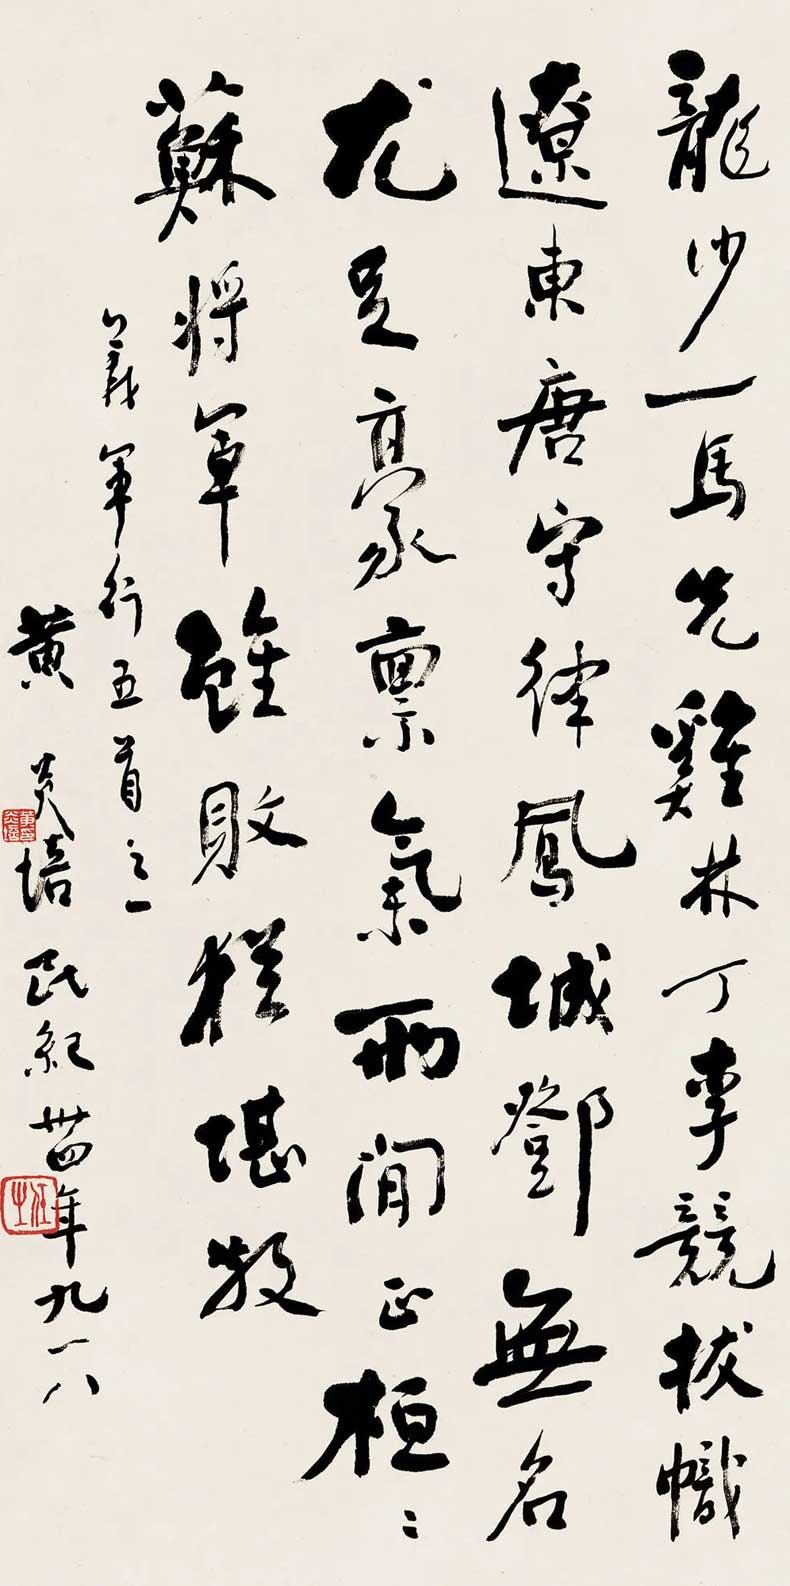 龍沙一馬先雞林丁李競拔幟
遼東唐守律鳳城鄧無名
尤足豪禀氣兩間正桓〻
蘇將軍雖敗猶堪敬
義軍行五首之一
黃炎培民紀卅四年九一八
任之